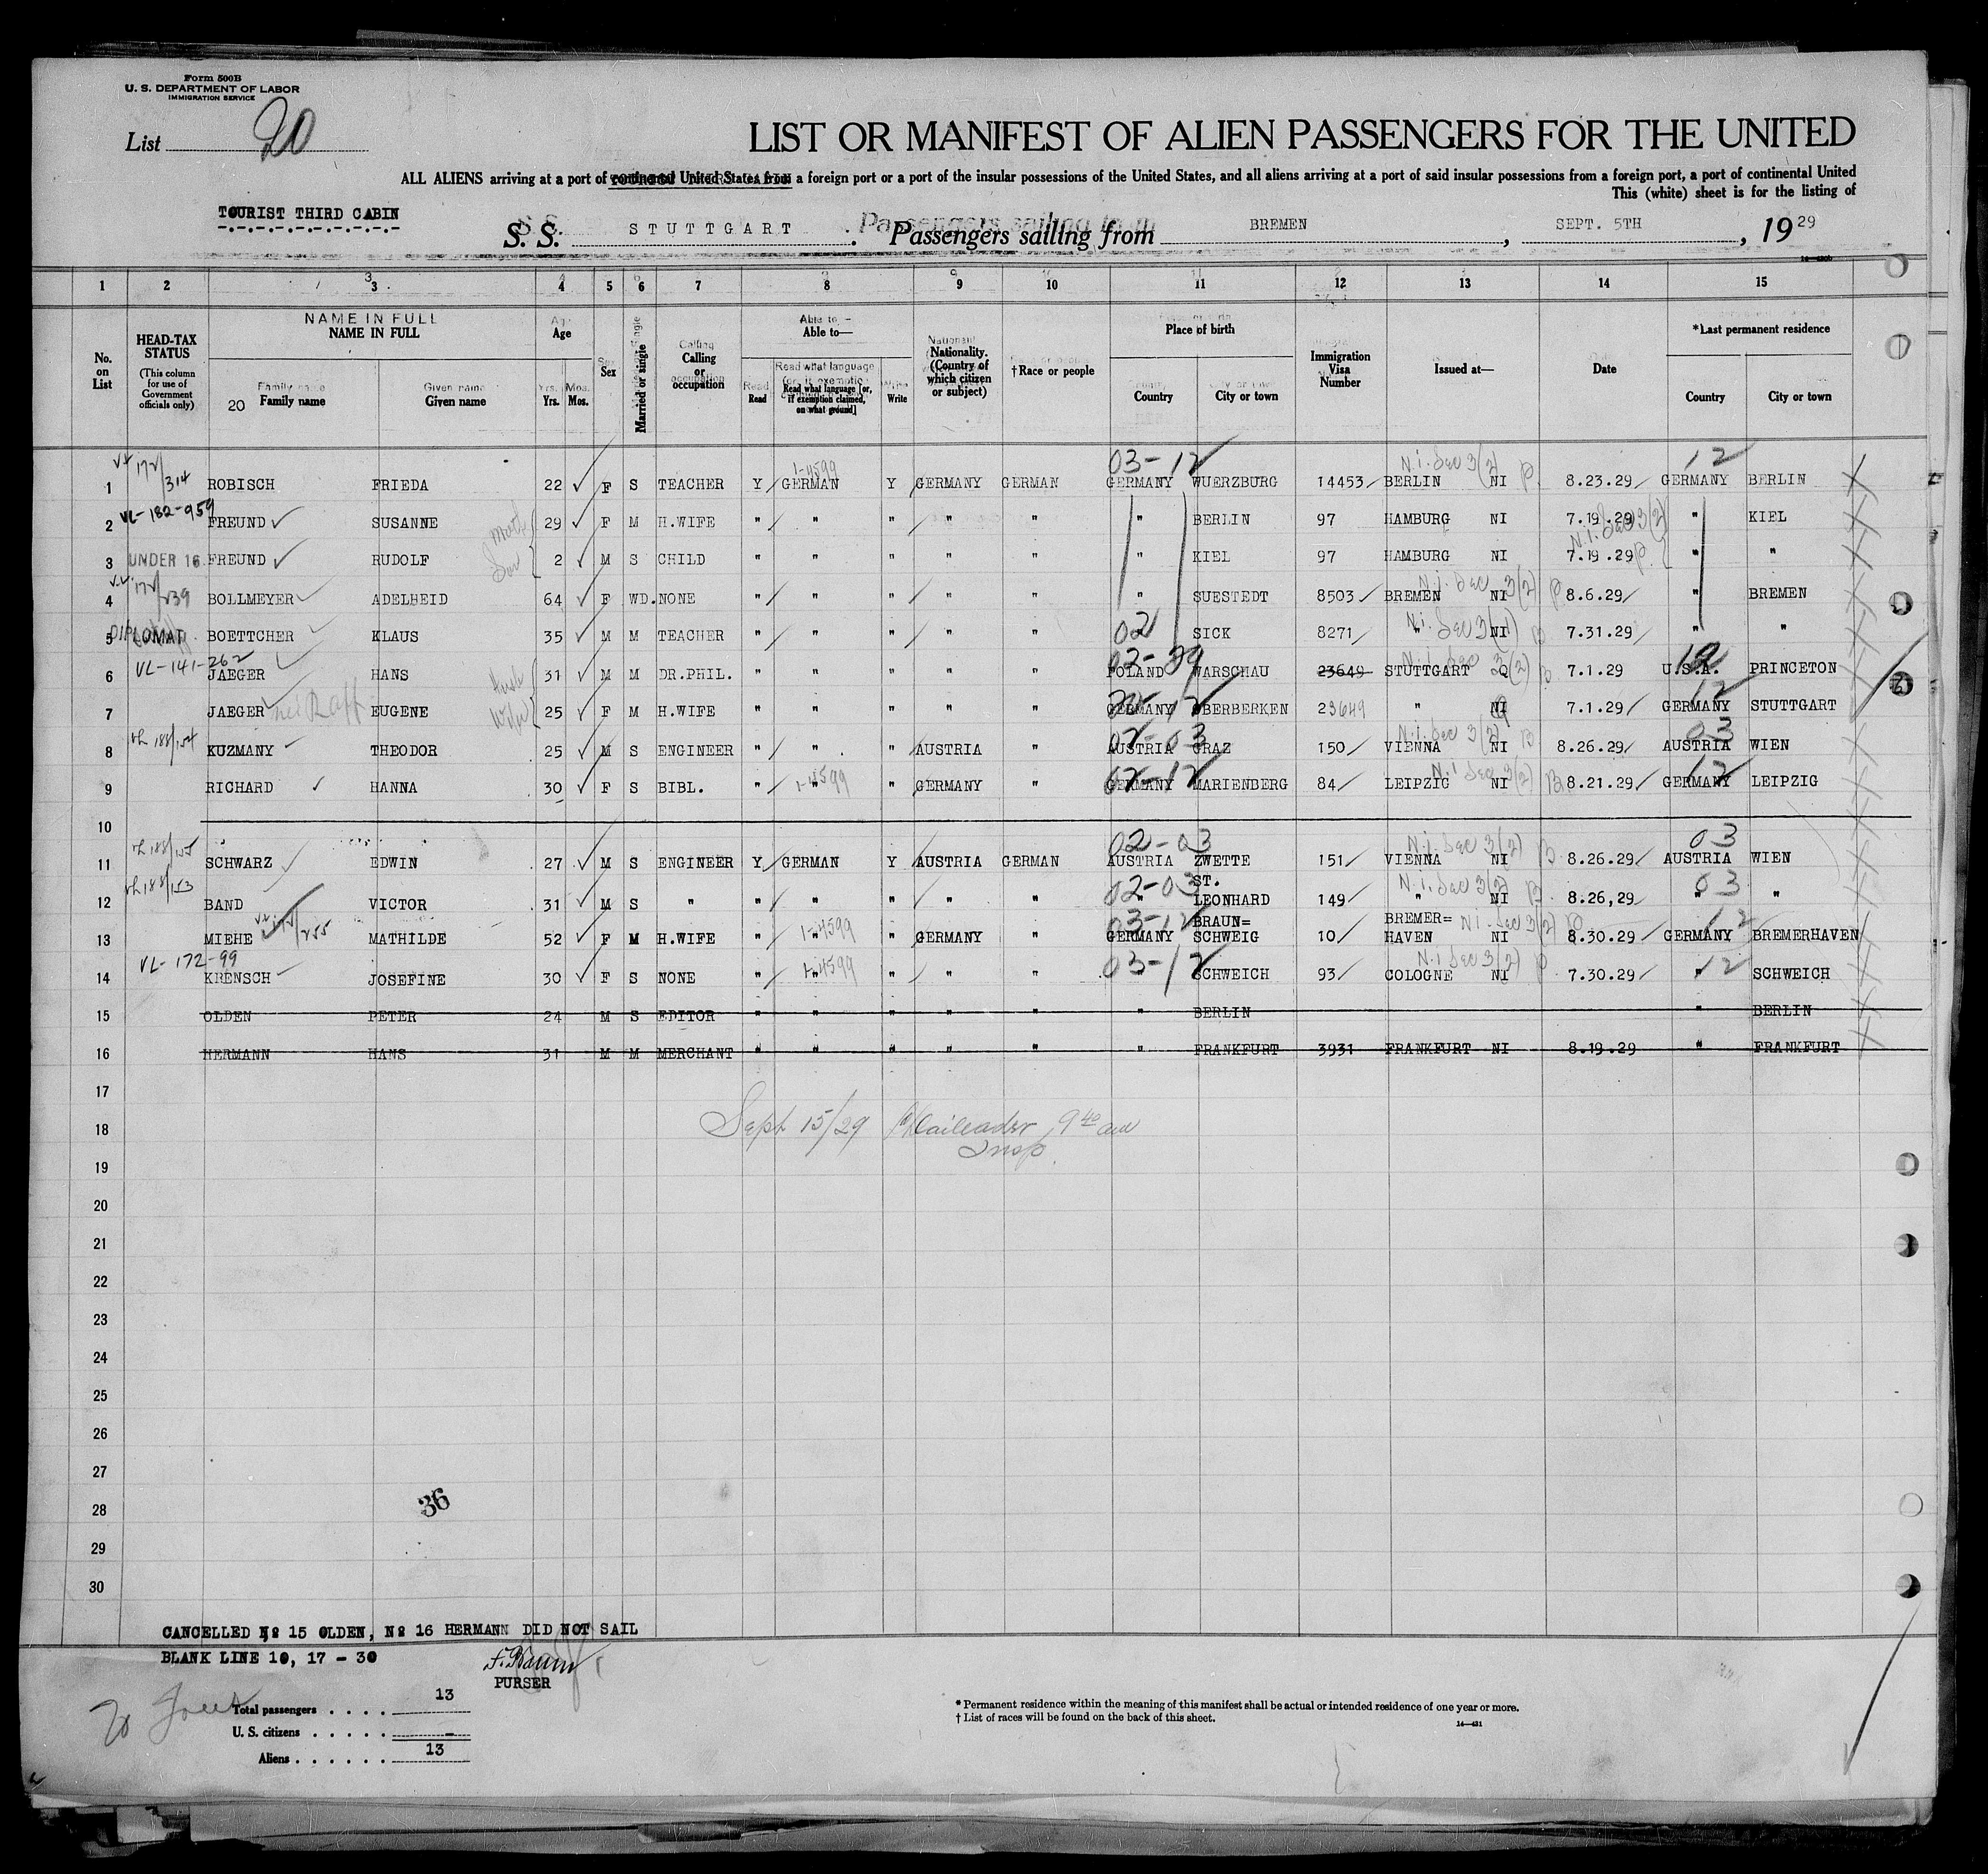 Form 500B
U. S. DEPARTMENT OF LABOR
IMMIGRATION SERVICE
List 20
LIST OR MANIFEST OF ALIEN PASSENGERS FOR THE UNITED
ALL ALIENS arriving at a port of continental United States from a foreign port or a port of the insular possessions of the United States, and all aliens arriving at a port of said insular possessions from a foreign port, a port of continental United
This (white) sheet is for the listing of
TOURIST THIRD CABIN
S. S. STUTTGART . Passengers sailing from BREMEN , SEPT. 5TH , 19 29
1 2 3 4 5 6 7 8 9 10 11 12 13 14 15
No. on List
HEAD-TAX STATUS (This column for use of Government officials only)
NAME IN FULL
20 Family name Given name
Age Yrs. Mos.
Sex
Married or single
Calling or occupation
Able to— Read Read what language [or, if exemption claimed, on what ground] Write
Nationality. (Country of which citizen or subject)
†Race or people
Place of birth Country City or town
Immigration Visa Number
Issued at—
Date
*Last permanent residence Country City or town
03-12 N.i. Sec 3(2) 12
1 172/314 ROBISCH FRIEDA 22 F S TEACHER Y 1-4599 GERMAN Y GERMANY GERMAN GERMANY WUERZBURG 14453 BERLIN NI 8.23.29 GERMANY BERLIN
2 VL-182-959 FREUND SUSANNE 29 F M H.WIFE " " " " " " BERLIN 97 HAMBURG NI 7.19.29 " KIEL
N.i. Sec 3(2)
3 UNDER 16 FREUND RUDOLF Son 2 M S CHILD " " " " " " KIEL 97 HAMBURG NI 7.19.29 " "
4 172/239 BOLLMEYER ADELHEID 64 F WD. NONE " " " " " " SUESTEDT 8503 BREMEN NI N.i. Sec 3(2) 8.6.29 " BREMEN
5 DIPLOMAT BOETTCHER KLAUS 35 M M TEACHER " " " " " 02 SICK 8271 " NI N.i. Sec 3(1) 7.31.29 " "
VL-141-262 02-29
6 JAEGER HANS 31 M M DR.PHIL. " " " " " POLAND WARSCHAU 23649 STUTTGART Q 7.1.29 U.S.A. 12 PRINCETON
7 JAEGER nee Raff EUGENE Wife 25 F M H.WIFE " " " " " GERMANY OBERBERKEN 23649 " NI Q 7.1.29 GERMANY 12 STUTTGART
02-03 N.i. Sec 3(2) 03
8 188/154 KUZMANY THEODOR 25 M S ENGINEER " " " AUSTRIA " AUSTRIA GRAZ 150 VIENNA NI 8.26.29 AUSTRIA WIEN
9 RICHARD HANNA 30 F S BIBL. " 1-4599 " " GERMANY " GERMANY 02-12 MARIENBERG 84 LEIPZIG NI N.i Sec 3(2) 8.21.29 GERMANY 12 LEIPZIG
10
188/155 02-03 N.i. Sec 3(2) 03
11 SCHWARZ EDWIN 27 M S ENGINEER Y GERMAN Y AUSTRIA GERMAN AUSTRIA ZWETTE 151 VIENNA NI 8.26.29 AUSTRIA WIEN
188/153 02-03 ST. N.i. Sec 3(2) 03
12 BAND VICTOR 31 M S " " " " " " " LEONHARD 149 " NI 8.26,29 " "
172/255 03-12 BRAUN= BREMER= N.i. Sec 3(2) 12
13 MIEHE MATHILDE 52 F M H.WIFE " 1-4599 " " GERMANY " GERMANY SCHWEIG 10 HAVEN NI 8.30.29 GERMANY BREMERHAVEN
VL-172-99 03-12 N.i Sec 3(2)
14 KRENSCH JOSEFINE 30 F S NONE " 1-4599 " " " " " SCHWEICH 93 COLOGNE NI 7.30.29 " 12 SCHWEICH
15 OLDEN PETER 24 M S EDITOR " " " " " " BERLIN " BERLIN
16 HERMANN HANS 31 M M MERCHANT " " " " " " FRANKFURT 3931 FRANKFURT NI 8.19.29 " FRANKFURT
17
18 Sept 15/29 9 40 am
Insp.
19
20
21
22
23
24
25
26
27
28 36
29
30
CANCELLED No 15 OLDEN, No 16 HERMANN DID NOT SAIL
BLANK LINE 10, 17 - 30
F. Baum
PURSER
Total passengers . . . . 13
U. S. citizens . . . . . -
Aliens . . . . . . 13
* Permanent residence within the meaning of this manifest shall be actual or intended residence of one year or more.
† List of races will be found on the back of this sheet.
14—431